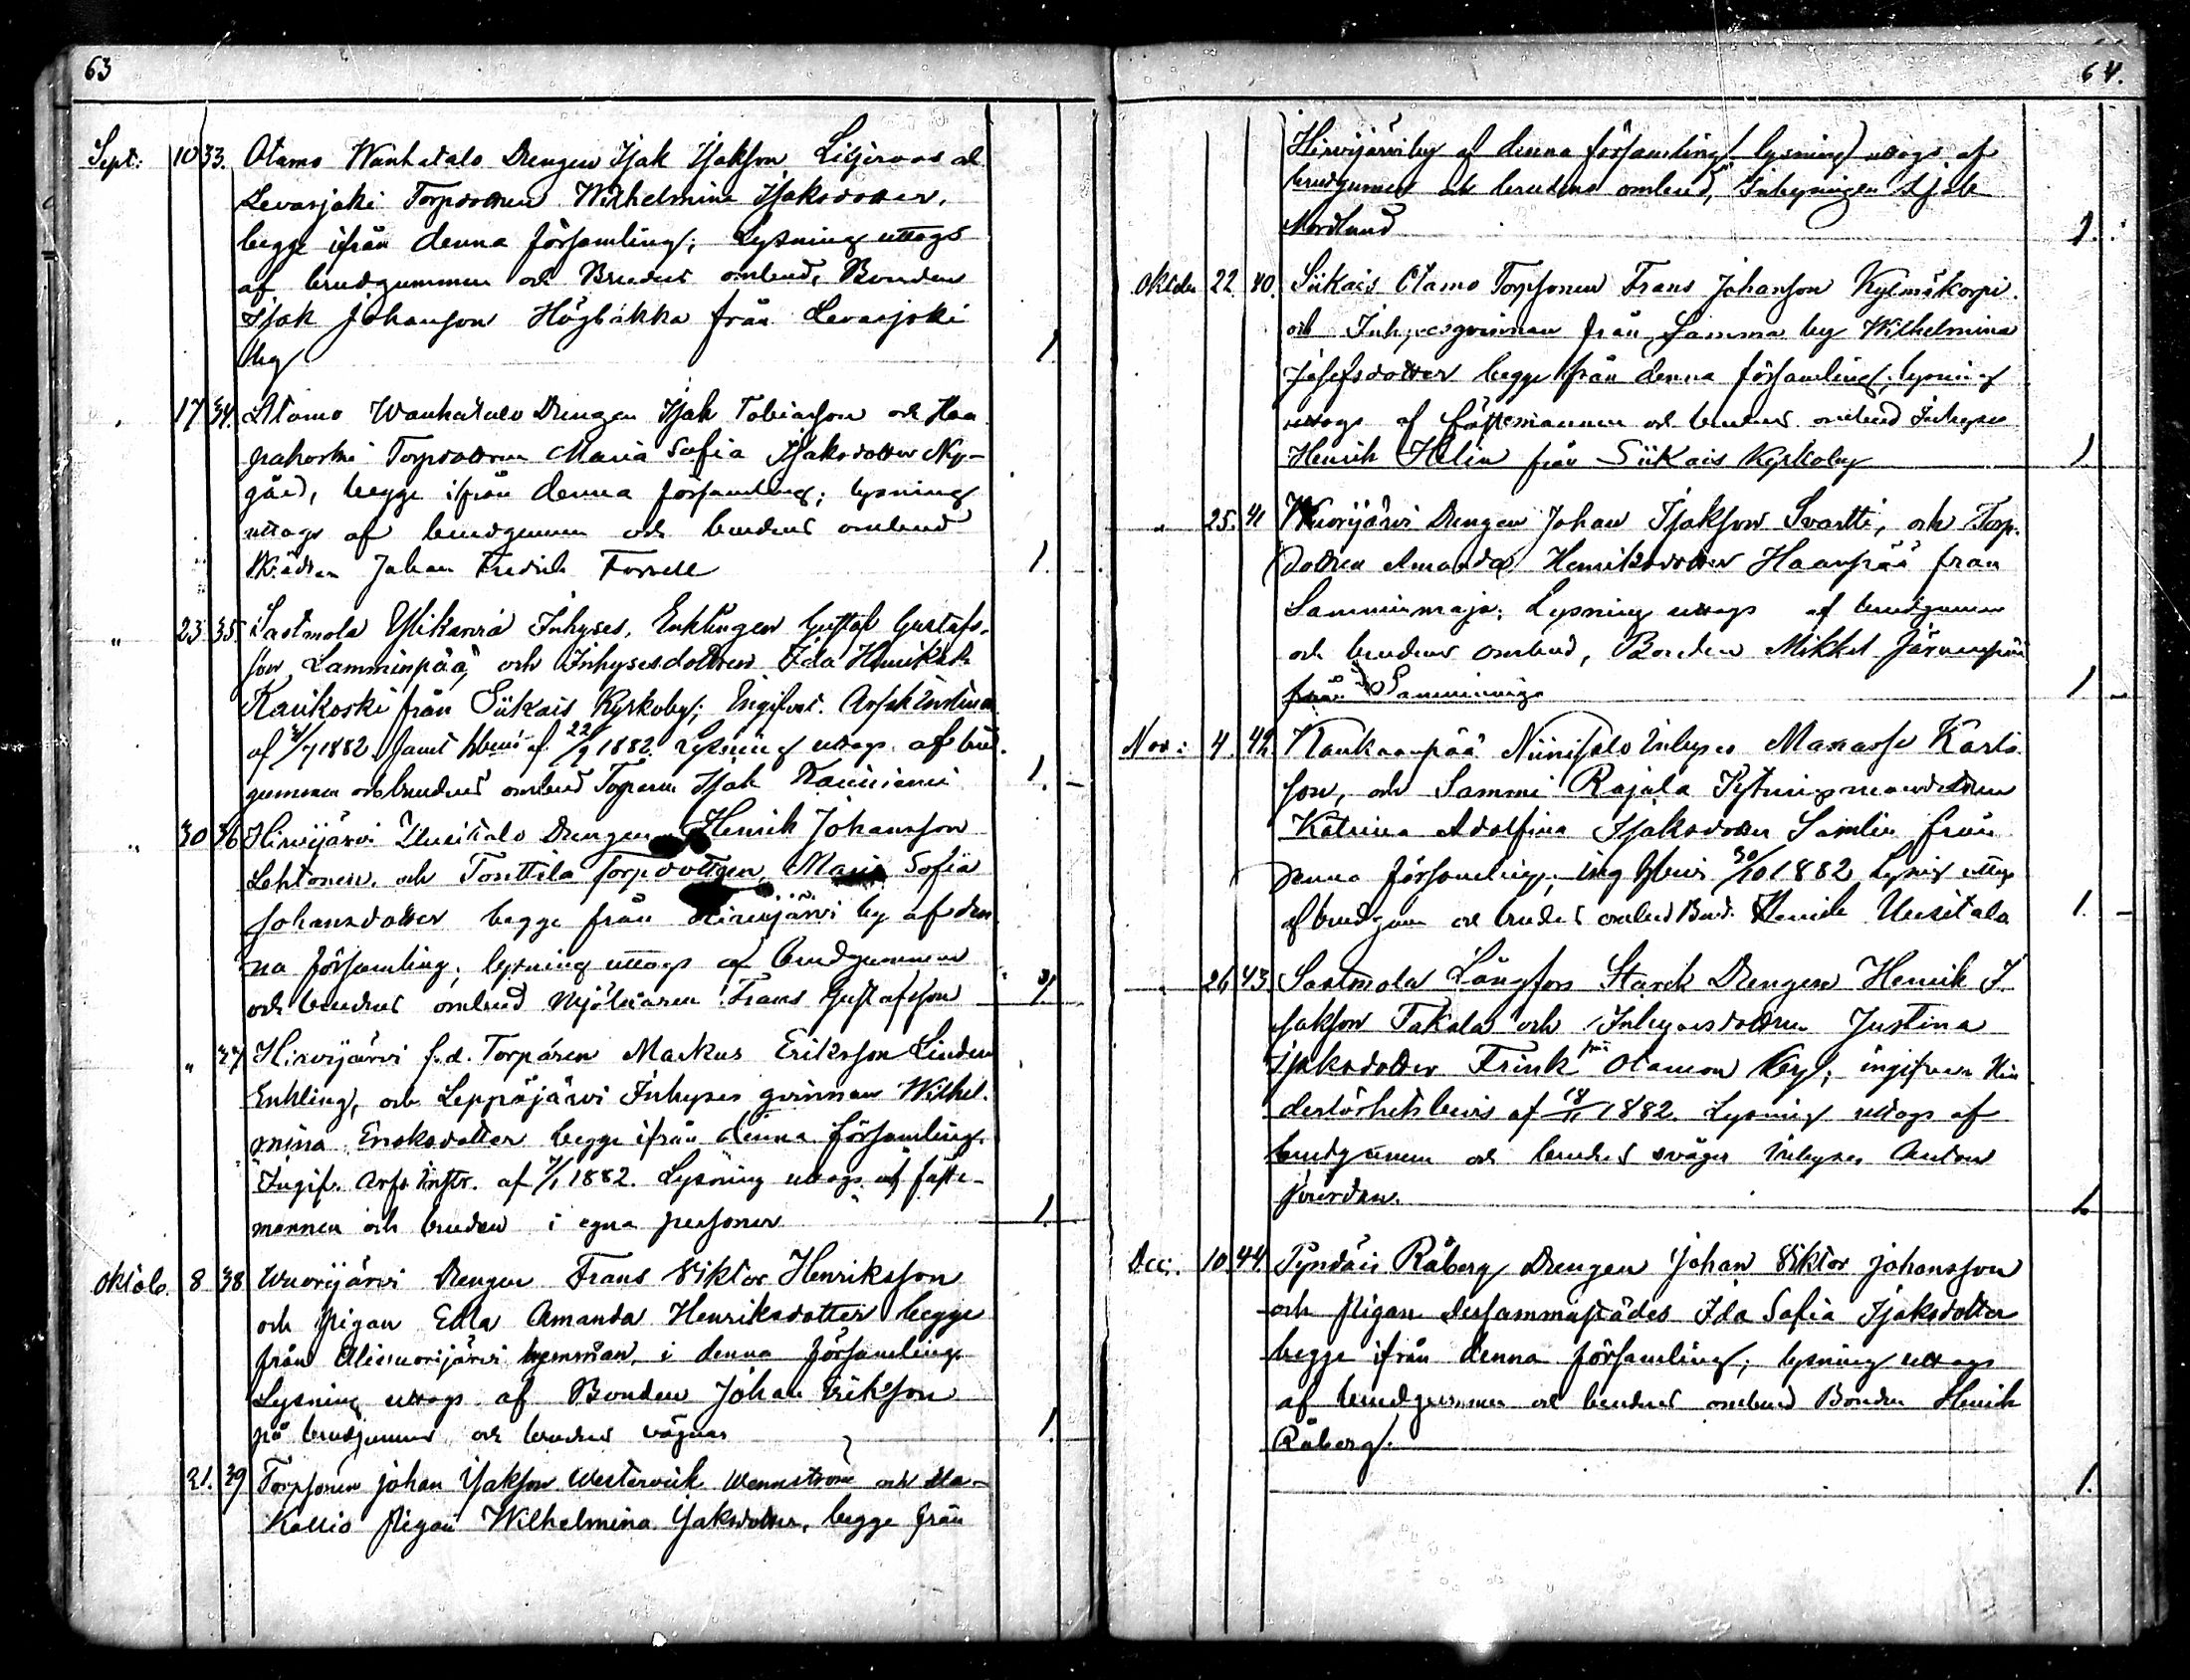 63
Sept: 10 33. Otamo Wanhatalo Drengen Isak Isaksson och
Levasjoki Torpdottren Wilhelmina Isaksdotter,
begge ifrån denna församling; Lysning uttogs
af brudgummen och Brudens ombud, Bonden
Isak Johansson Högbakka från Levasjoki
by 1
" 17 34. Otamo Wanhatalo Drengen Isak Tobiasson och Haa
pakoski Torpdottren Maria Sofia Isaksdotter Ny-
gård, begge ifrån denna församling; lysning
uttogs af brudgummen och brudens ombud
Johan Fredrik Forsell 1.
" 23 35. Sastmola Ylikaria Inhyses, Enklingen Gustaf Gustafs-
son Lamminpää, och Inhysesdottren Ida Henriksdr
Kaukoski från Siikais Kyrkoby; Ingifvet.
af /7 1882 samt hbevis af 22/9 1882. Lysning uttogs af brud-
gummen och brudens ombud Torparen Isak 1.
" 30 36 Hirvijärvi Uusitalo Drengen Henrik Johansson
Lehtonen, och Tonttila Torpdottren, Maria Sofia
Johansdotter begge från Hirvijärvi by af den
na församling; lysning uttogs af Brudgummen
och brudens ombud Mjölnaren Frans Gustafsson 1
" 37 Hirvijärvi f.d. Torparen Markus Eriksson Linden
Enkling, och Leppäjärvi Inhyses qvinnan Wilhel-
mina Eriksdotter begge ifrån denna församling.
Ingif. Arfs instr. af 1882. Lysning uttogs af fäste-
mannen och bruden i egna personer 1.
Oktob. 8 38 Wuorijärvi Drengen Frans Viktor Henriksson
och pigan Edla Amanda Henriksdotter begge
från Aliwuorijärvi hemman, i denna församling
Lysning uttogs af Bonden Johan Eriksson
på brudgummens och brudens vägnar 1.
21. 39 Torpsonen Johan Isaksson Westervik Wennström och Ala-
Kallio Pigan Wilhelmina Isaksdotter, begge från
64.
Hirvijärvi by af denna församling; lysning uttogs af
brudgummen och brudens ombud, Inhysingen Isak
Nordlund 1.
Oktober 22. 40. Siikais Otamo Torpsonen Frans Johansson Kylmäkorpi
och Inhysesqvinnan från samma by Wilhelmina
Josefsdotter begge från denna församling; lysning
uttogs af fästemannen och brudens ombud Inhyses
Henrik Helin från Siikais Kyrkoby 1
" 25. 41 Wuorijärvi Drengen Johan Isaksson Svartti, och Torp-
dottren Amanda Henriksdotter Haanpää från
Samminmaja; Lysning uttogs af brudgummen
och brudens ombud, Bonden Mikkel Järvenpää
från Samminmaja 1
Nov: 4. 42 Kankaanpää Niinisalo Inhyses Manasse Karls-
son, och Sammi Rajala Sytningsmansdottren
Katrina Adolfina Isaksdotter Samlin från
denna församling; ing hbevis 30/10 1882 Lysning uttogs
af brudgum och brudens ombud Bond. Henrik Uusitalo 1.
" 26 43. Sastmola Långfors Starck Drengen Henrik I-
saksson Takala och Inhysesdottren Justina
Isaksdotter Frisk från Otamon by; ingifven Hin
derlöshetsbevis af 18/11 1882. Lysning uttogs af
brudgummen och brudens svåger Inhyses Anton
1.
Dec: 10. 44. Pyndäis Råberg Drengen Johan Viktor Johansson
och pigan dersammastädes Ida Sofia Isaksdotter
begge ifrån denna församling; lysning uttogs
af brudgummen och brudens ombud Bonden Henrik
Råberg.
1.